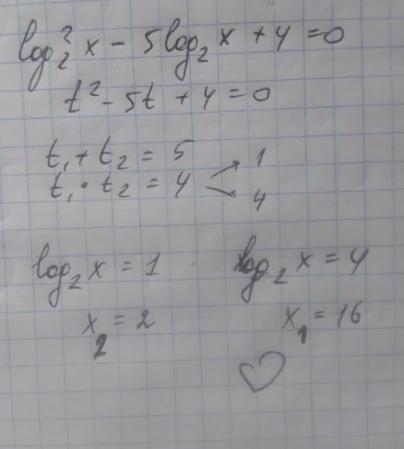 log₂² x - 5log₂ x + 4 = 0
t² - 5t + 4 = 0
t₁ + t₂ = 5 1
t₁ · t₂ = 4 4
log₂ x = 1 log₂ x = 4
x₂ = 2 x₁ = 16